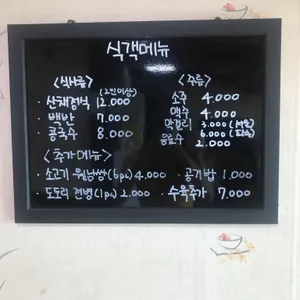 식객메뉴
<식사류> (2인이상)
· 산채정식 12.000
· 백반 7.000
· 콩국수 8.000
<주류>
소주 4.000
맥주 4.000
막걸리 3.000
6.000
음료수 2.000
<추가메뉴>
· 소고기 월남쌈(6ps) 4.000 · 공기밥 1.000
· 도토리 전병(1ps) 2.000 · 수육추가 7.000